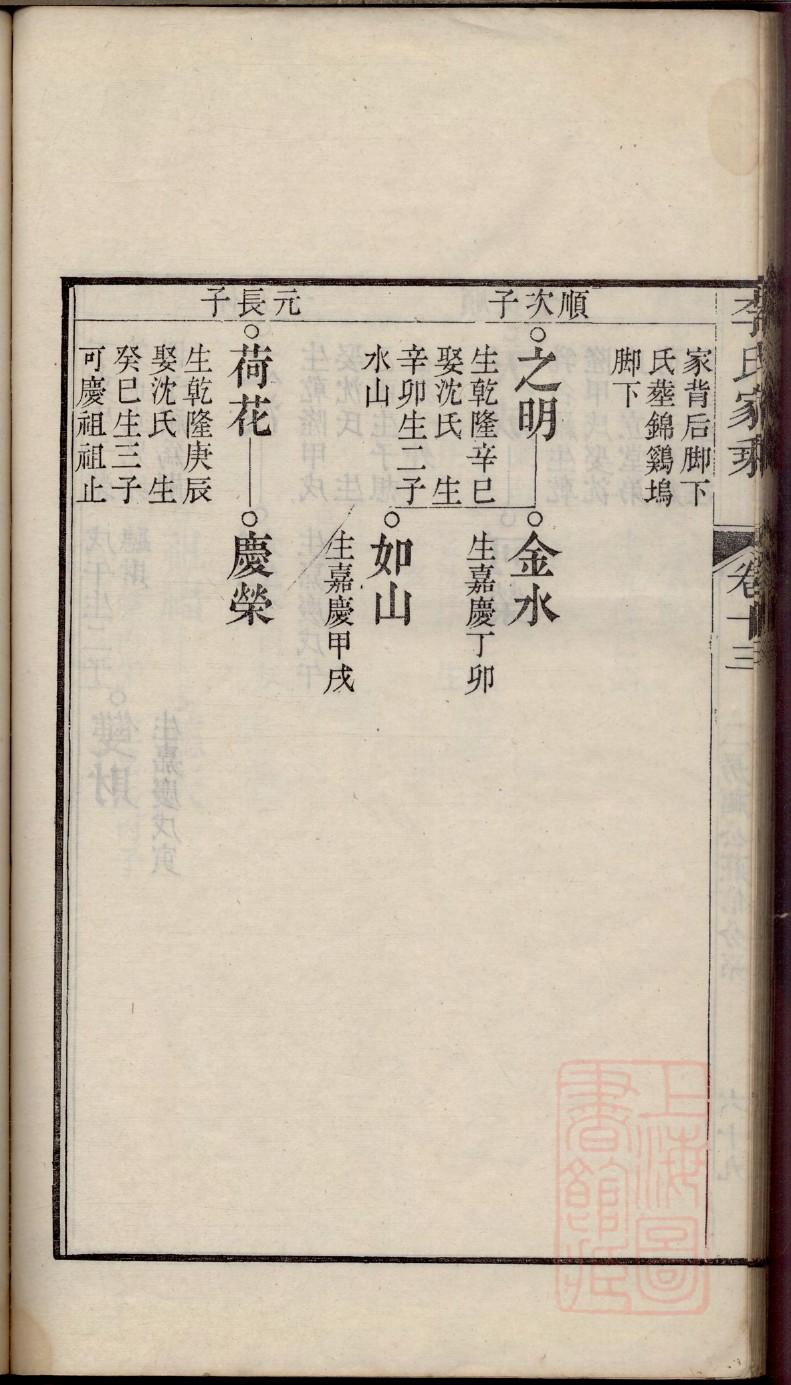 李氏家乘
卷十三
家背后脚下
氏塟錦鷄塢
脚下
順次子
之明
生乾隆辛巳
娶沈氏 生
辛卯生二子
水山
金水
生嘉慶丁卯
如山
生嘉慶甲戌
元長子
荷花
生乾隆庚辰
娶沈氏 生
癸巳生三子
可慶祖祖止
慶榮
上海圖書館藏